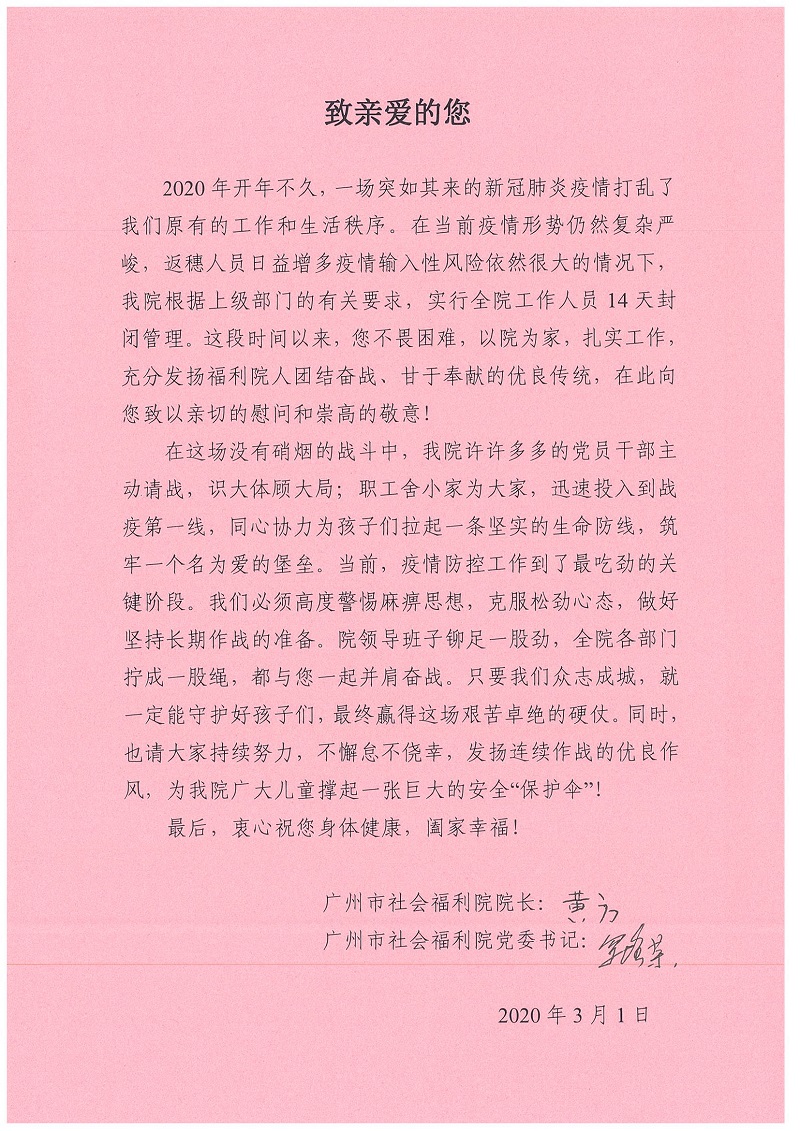 致亲爱的您
2020 年开年不久，一场突如其来的新冠肺炎疫情打乱了
我们原有的工作和生活秩序。在当前疫情形势仍然复杂严
峻，返穗人员日益增多疫情输入性风险依然很大的情况下，
我院根据上级部门的有关要求，实行全院工作人员 14 天封
闭管理。这段时间以来，您不畏困难，以院为家，扎实工作，
充分发扬福利院人团结奋战、甘于奉献的优良传统，在此向
您致以亲切的慰问和崇高的敬意！
在这场没有硝烟的战斗中，我院许许多多的党员干部主
动请战，识大体顾大局；职工舍小家为大家，迅速投入到战
疫第一线，同心协力为孩子们拉起一条坚实的生命防线，筑
牢一个名为爱的堡垒。当前，疫情防控工作到了最吃劲的关
键阶段。我们必须高度警惕麻痹思想，克服松劲心态，做好
坚持长期作战的准备。院领导班子铆足一股劲，全院各部门
拧成一股绳，都与您一起并肩奋战。只要我们众志成城，就
一定能守护好孩子们，最终赢得这场艰苦卓绝的硬仗。同时，
也请大家持续努力，不懈怠不侥幸，发扬连续作战的优良作
风，为我院广大儿童撑起一张巨大的安全“保护伞”！
最后，衷心祝您身体健康，阖家幸福！
广州市社会福利院院长：黄
广州市社会福利院党委书记：
2020 年 3 月 1 日